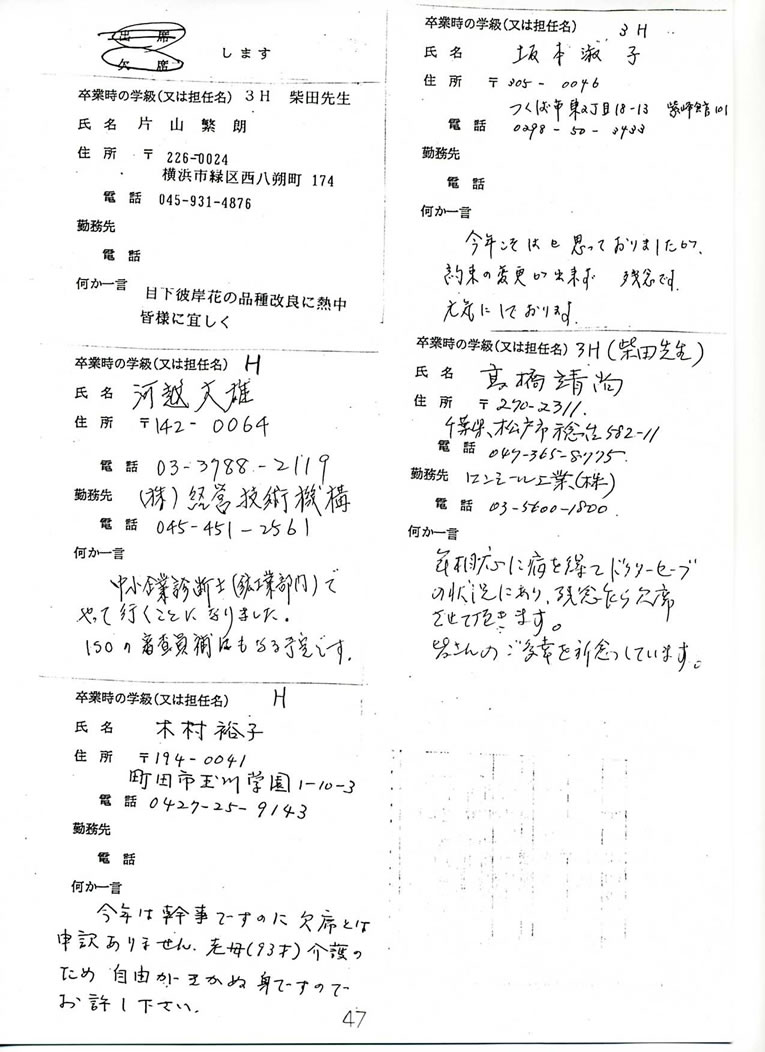 出席
欠席
します
卒業時の学級(又は担任名) 3H 柴田先生
氏名 片山繁朗
住所 〒 226-0024
横浜市緑区西八朔町 174
電話 045-931-4876
勤務先
電話
何か一言
目下彼岸花の品種改良に熱中
皆様に宜しく
卒業時の学級(又は担任名) H
氏名 河越文雄
住所 〒142-0064
電話 03-3788-2119
勤務先 (株)経営技術機構
電話 045-451-2561
何か一言
中小企業診断士(鉱工業部門)で
やって行くことになりました。
ISOの審査員補にもなる予定です。
卒業時の学級(又は担任名) H
氏名 木村裕子
住所 〒194-0041
町田市玉川学園1-10-3
電話 0427-25-9143
勤務先
電話
何か一言
今年は幹事ですのに欠席とは
申訳ありません。老母(93才)介護の
ため 自由がきかぬ身ですので
お許し下さい。
卒業時の学級(又は担任名) 3H
氏名 坂本淑子
住所 〒305-0046
つくば市東2丁目18-13 101
電話 0298-50-3433
勤務先
電話
何か一言
今年こそはと思っておりましたが、
約束の変更が出来ず 残念です。
元気にしております。
卒業時の学級(又は担任名) 3H(柴田先生)
氏名 高橋靖尚
住所 〒270-2311.
千葉県、松戸市稔台582-11
電話 047-365-8775
勤務先 ロンミール工業(株)
電話 03-5600-1800
何か一言
年相応に病を得てドクターセーブ
の状況にあり、残念ながら欠席
させて頂きます。
皆さんのご多幸を祈念しています。
47